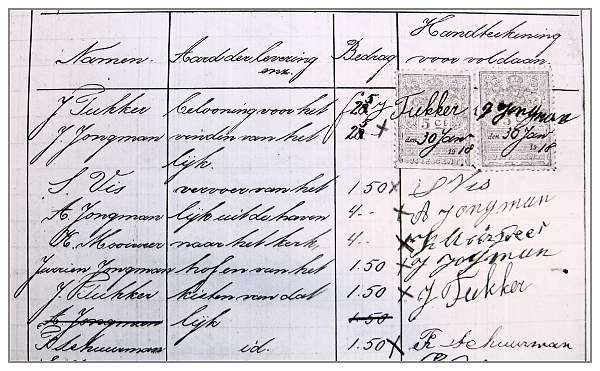 Namen. Aard der levering enz. Bedrag Handteekening voor voldaan.
J Tukker belooning voor het 25 J Tukker J Jongman
J. Jongman vinden van het 25 x den 30 Jan 1918 den 30 Jan 1918
lijk.
S. Vis vervoer van het 1.50 x S Vis
A. Jongman lijk uit de haven 4.- x A Jongman
K. naar het kerk 4.- x
Jurrien Jongman hof en van het 1.50 x J Jongman
J. Tukker kisten van dat 1.50 x J Tukker
A Jongman lijk 1.50
R Schuurman id. 1.50 x R Schuurman